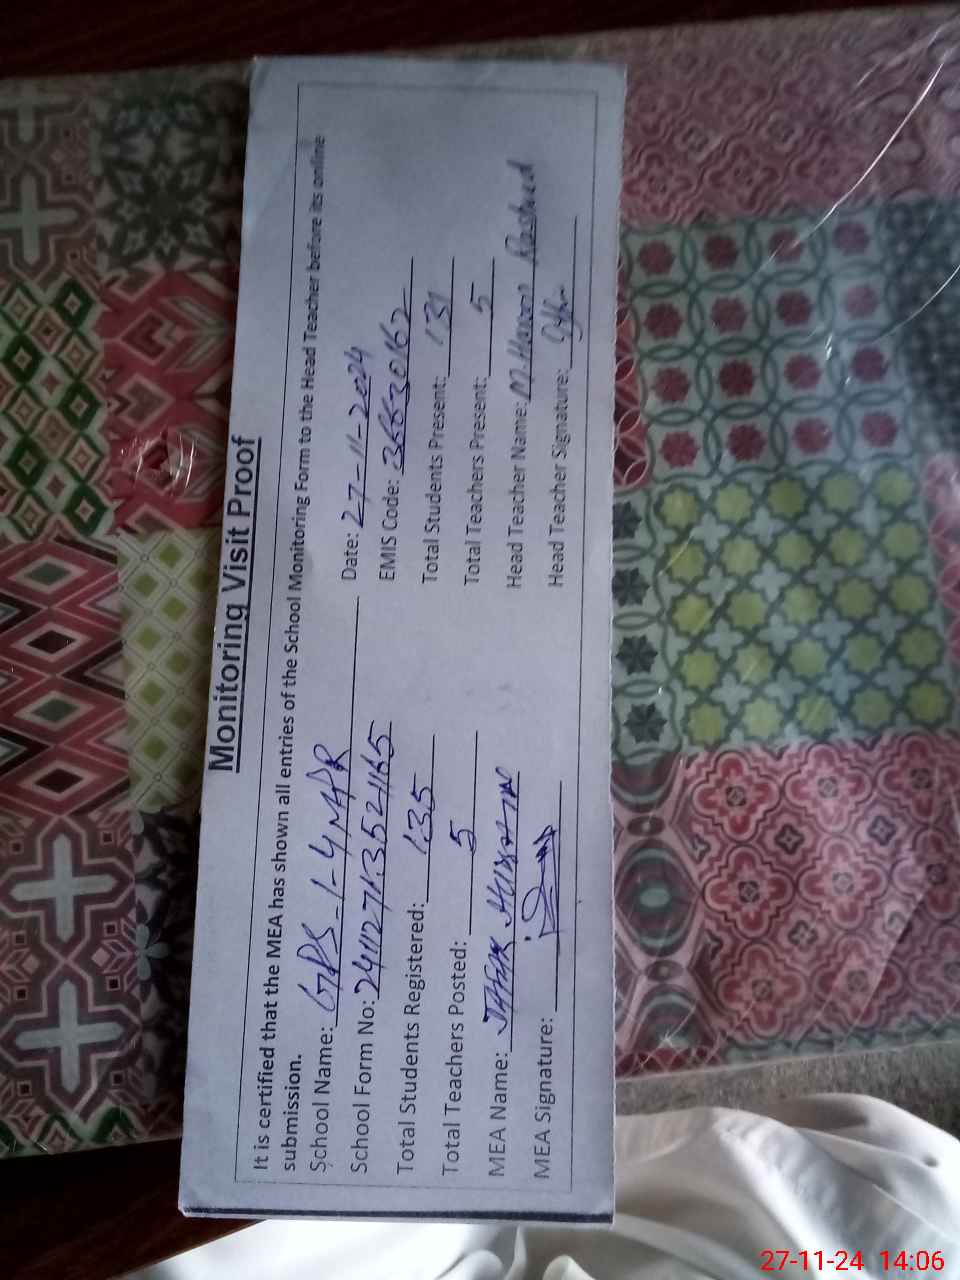 Monitoring Visit Proof
It is certified that the MEA has shown all entries of the School Monitoring Form to the Head Teacher before its online
submission.
School Name: GPS 1-4 MPR Date: 27-11-2024
School Form No: EMIS Code:
Total Students Registered: 135 Total Students Present: 131
Total Teachers Posted: 5 Total Teachers Present: 5
MEA Name: Head Teacher Name: M. Rasheed
MEA Signature: Head Teacher Signature:
27-11-24 14:06